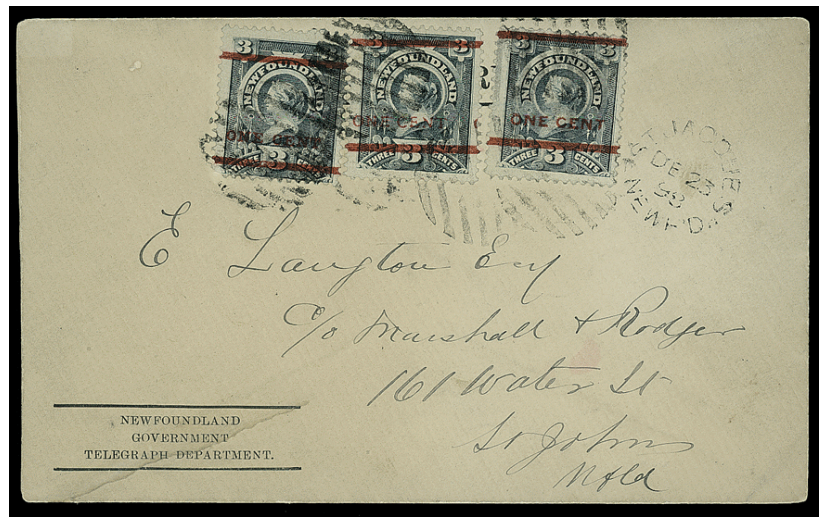 3 3
NEWFOUNDLAND
ONE CENT
THREE 3 CENTS
3 3
NEWFOUNDLAND
ONE CENT
THREE 3 CENTS
3 3
NEWFOUNDLAND
ONE CENT
THREE 3 CENTS
ST. JACQUES
DE 23
98
NEWF'D.
E Langton Esq
c/o Marshall & Rodger
161 Water St
St Johns
Nfld
NEWFOUNDLAND
GOVERNMENT
TELEGRAPH DEPARTMENT.